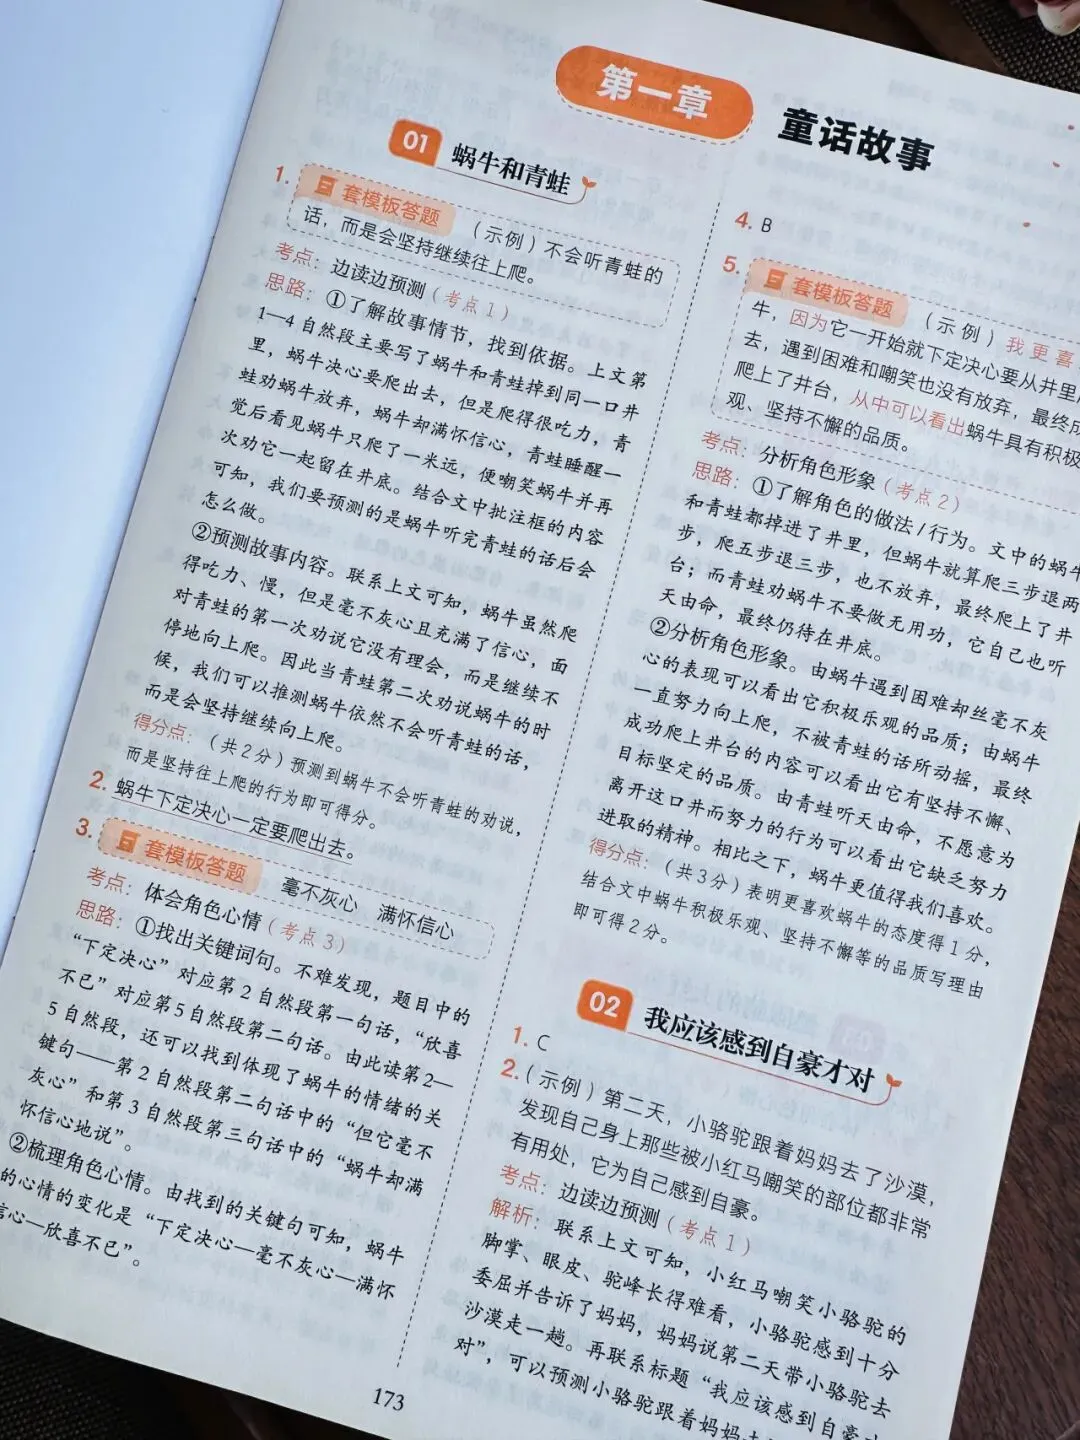 第一章
童话故事
01 蜗牛和青蛙
1. 套模板答题 （示例）不会听青蛙的
话，而是会坚持继续往上爬。
考点：边读边预测（考点1）
思路：①了解故事情节，找到依据。上文第
1—4自然段主要写了蜗牛和青蛙掉到同一口井
里，蜗牛决心要爬出去，但是爬得很吃力，青
蛙劝蜗牛放弃，蜗牛却满怀信心，青蛙睡醒一
觉后看见蜗牛只爬了一米远，便嘲笑蜗牛并再
次劝它一起留在井底。结合文中批注框的内容
可知，我们要预测的是蜗牛听完青蛙的话后会
怎么做。
②预测故事内容。联系上文可知，蜗牛虽然爬
得吃力、慢，但是毫不灰心且充满了信心，面
对青蛙的第一次劝说它没有理会，而是继续不
停地向上爬。因此当青蛙第二次劝说蜗牛的时
候，我们可以推测蜗牛依然不会听青蛙的话，
而是会坚持继续向上爬。
得分点：（共2分）预测到蜗牛不会听青蛙的劝说，
而是坚持往上爬的行为即可得分。
2. 蜗牛下定决心一定要爬出去。
3. 套模板答题 毫不灰心 满怀信心
考点：体会角色心情（考点3）
思路：①找出关键词句。不难发现，题目中的
“下定决心”对应第2自然段第一句话，“欣喜
不已”对应第5自然段第二句话。由此读第2—
5自然段，还可以找到体现了蜗牛的情绪的关
键句——第2自然段第二句话中的“但它毫不
灰心”和第3自然段第三句话中的“蜗牛却满
怀信心地说”。
②梳理角色心情。由找到的关键句可知，蜗牛
的心情的变化是“下定决心—毫不灰心—满怀
信心—欣喜不已”。
173
4. B
5. 套模板答题 （示例）我更喜
牛，因为它一开始就下定决心要从井里
去，遇到困难和嘲笑也没有放弃，最终成
爬上了井台，从中可以看出蜗牛具有积极
观、坚持不懈的品质。
考点：分析角色形象（考点2）
思路：①了解角色的做法/行为。文中的蜗牛
和青蛙都掉进了井里，但蜗牛就算爬三步退两
步，爬五步退三步，也不放弃，最终爬上了井
台；而青蛙劝蜗牛不要做无用功，它自己也听
天由命，最终仍待在井底。
②分析角色形象。由蜗牛遇到困难却丝毫不灰
心的表现可以看出它积极乐观的品质；由蜗牛
一直努力向上爬，不被青蛙的话所动摇，最终
成功爬上井台的内容可以看出它有坚持不懈、
目标坚定的品质。由青蛙听天由命，不愿意为
离开这口井而努力的行为可以看出它缺乏努力
进取的精神。相比之下，蜗牛更值得我们喜欢。
得分点：（共3分）表明更喜欢蜗牛的态度得1分，
结合文中蜗牛积极乐观、坚持不懈等的品质写理由
即可得2分。
02 我应该感到自豪才对
1. C
2.（示例）第二天，小骆驼跟着妈妈去了沙漠，
发现自己身上那些被小红马嘲笑的部位都非常
有用处，它为自己感到自豪。
考点：边读边预测（考点1）
解析：联系上文可知，小红马嘲笑小骆驼的
脚掌、眼皮、驼峰长得难看，小骆驼感到十分
委屈并告诉了妈妈，妈妈说第二天带小骆驼去
沙漠走一趟。再联系标题“我应该感到自豪才
对”，可以预测小骆驼跟着妈妈